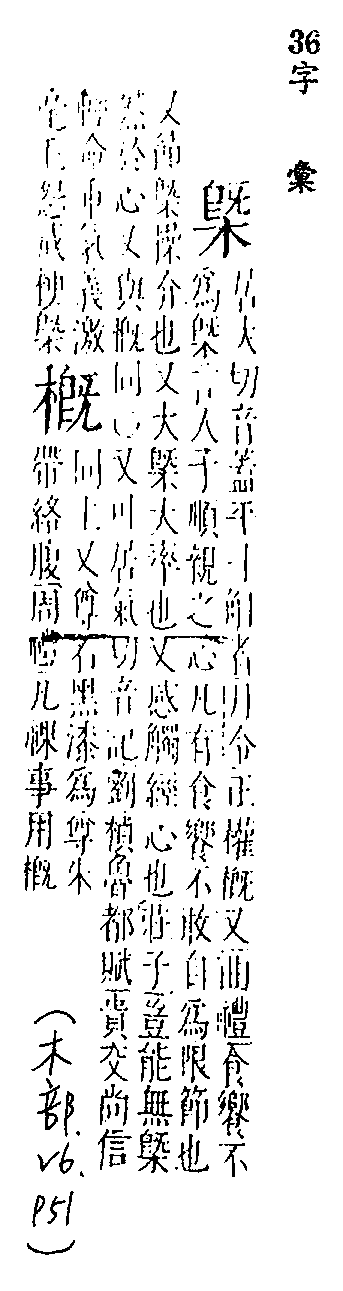 36字 彙
槩 居大切音蓋平斗斛者月令正權概又曲禮食饗不
爲槩言人子順親之心凡有食饗不敢自爲限節也
又節槩操介也又大槩大率也又感觸經心也莊子豈能無槩
然於心又與慨同又叶居氣切音記劉楨魯都賦貴交尚信
輕命重氣義激 概 同上又尊名黑漆爲尊朱
毫毛怨成梗槩 帶絡腹周禮凡祼事用概
(木部.V6.P51)